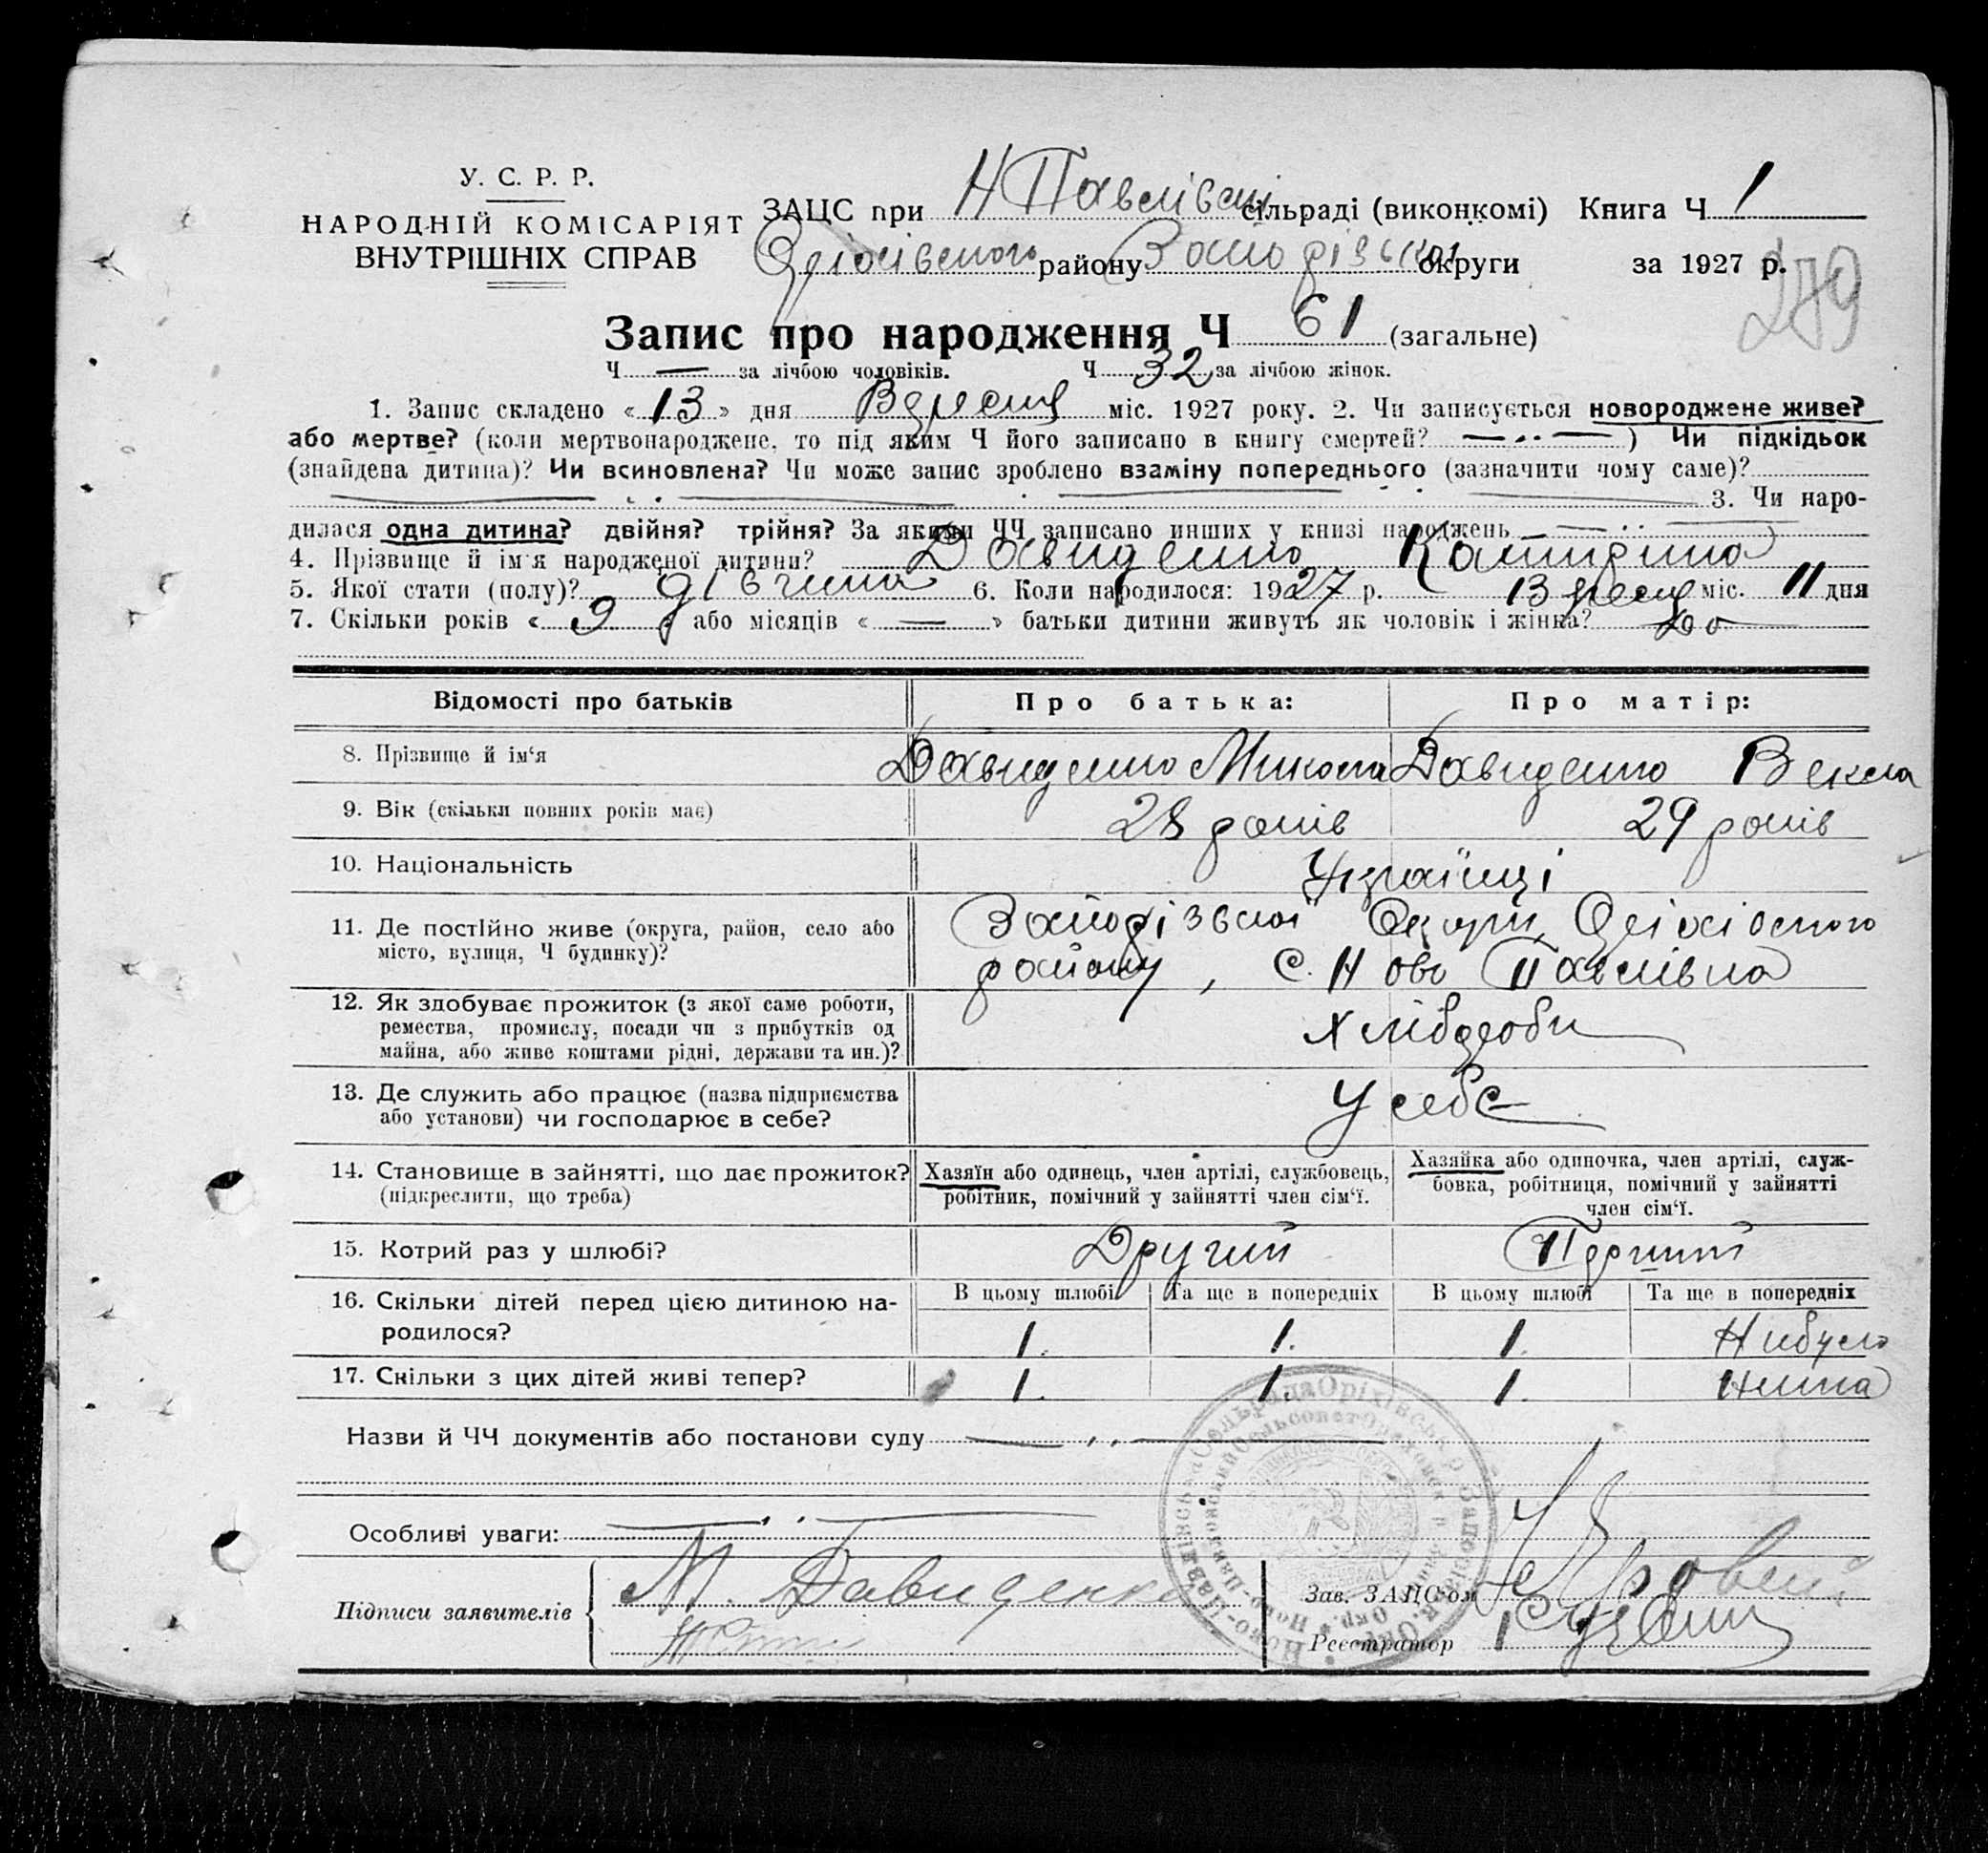 У. С. Р. Р.
НАРОДНІЙ КОМІСАРІЯТ
ВНУТРІШНІХ СПРАВ
ЗАЦС при Н Павлівській сільраді (виконкомі) Книга Ч 1
Оріхівського району Запорізької округи за 1927 р.
279
Запис про народження Ч 61 (загальне)
Ч — за лічбою чоловіків. Ч 32 за лічбою жінок.
1. Запис складено « 13 » дня Вересня міс. 1927 року. 2. Чи записується новороджене живе?
або мертве? (коли мертвонароджене, то під яким Ч його записано в книгу смертей? — .. — ) Чи підкідьок
(знайдена дитина)? Чи всиновлена? Чи може запис зроблено взаміну попереднього (зазначити чому саме)?
3. Чи наро-
дилася одна дитина? двійня? трійня? За якими ЧЧ записано инших у книзі народжень — .. —
4. Прізвище й ім'я народженої дитини? Давиденко Катирина
5. Якої стати (полу)? дівчина 6. Коли народилося: 1927 р. Вересня міс. 11 дня
7. Скільки років « 9 » або місяців « — » батьки дитини живуть як чоловік і жінка?
Відомості про батьків Про батька: Про матір:
8. Прізвище й ім‘я Давиденко Микола Давиденко Векла
9. Вік (скільки повних років має) 28 років 29 років
10. Національність Українці
11. Де постІйно живе (округа, район, село або Запорізької Округи, Оріхівського
місто, вулиця, Ч будинку)? району, с. Ново Павлівка
12. Як здобуває прожиток (з якої саме роботи,
ремества, промислу, посади чи з прибутків од
майна, або живе коштами рідні, держави та ин.)? Хліборобы
13. Де служить або працює (назва підприємства
або установи) чи господарює в себе? У себе
14. Становище в зайнятті, що дає прожиток?
(підкреслити, що треба)
Хазяїн або одинець, член артілі, службовець,
робітник, помічний у зайнятті член сім‘ї.
Хазяйка або одиночка, член артілі, служ-
бовка, робітниця, помічний у зайнятті
член сім‘ї.
15. Котрий раз у шлюбі? Другий Перший
16. Скільки дітей перед цією дитиною на-
родилося?
В цьому шлюбі Та ще в попередніх В цьому шлюбі Та ще в попередніх
1. 1. 1. Нибуло
17. Скільки з цих дітей живі тепер? 1. 1. 1. Нима
Назви й ЧЧ документів або постанови суду — .. —
Особливі уваги: — .. —
Підписи заявителів М. Давиденко
Зав. ЗАЦС'ом
Реєстратор